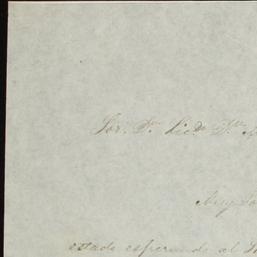 Sor. Dn. Licdo. Dn.
Muy
estado esperando al